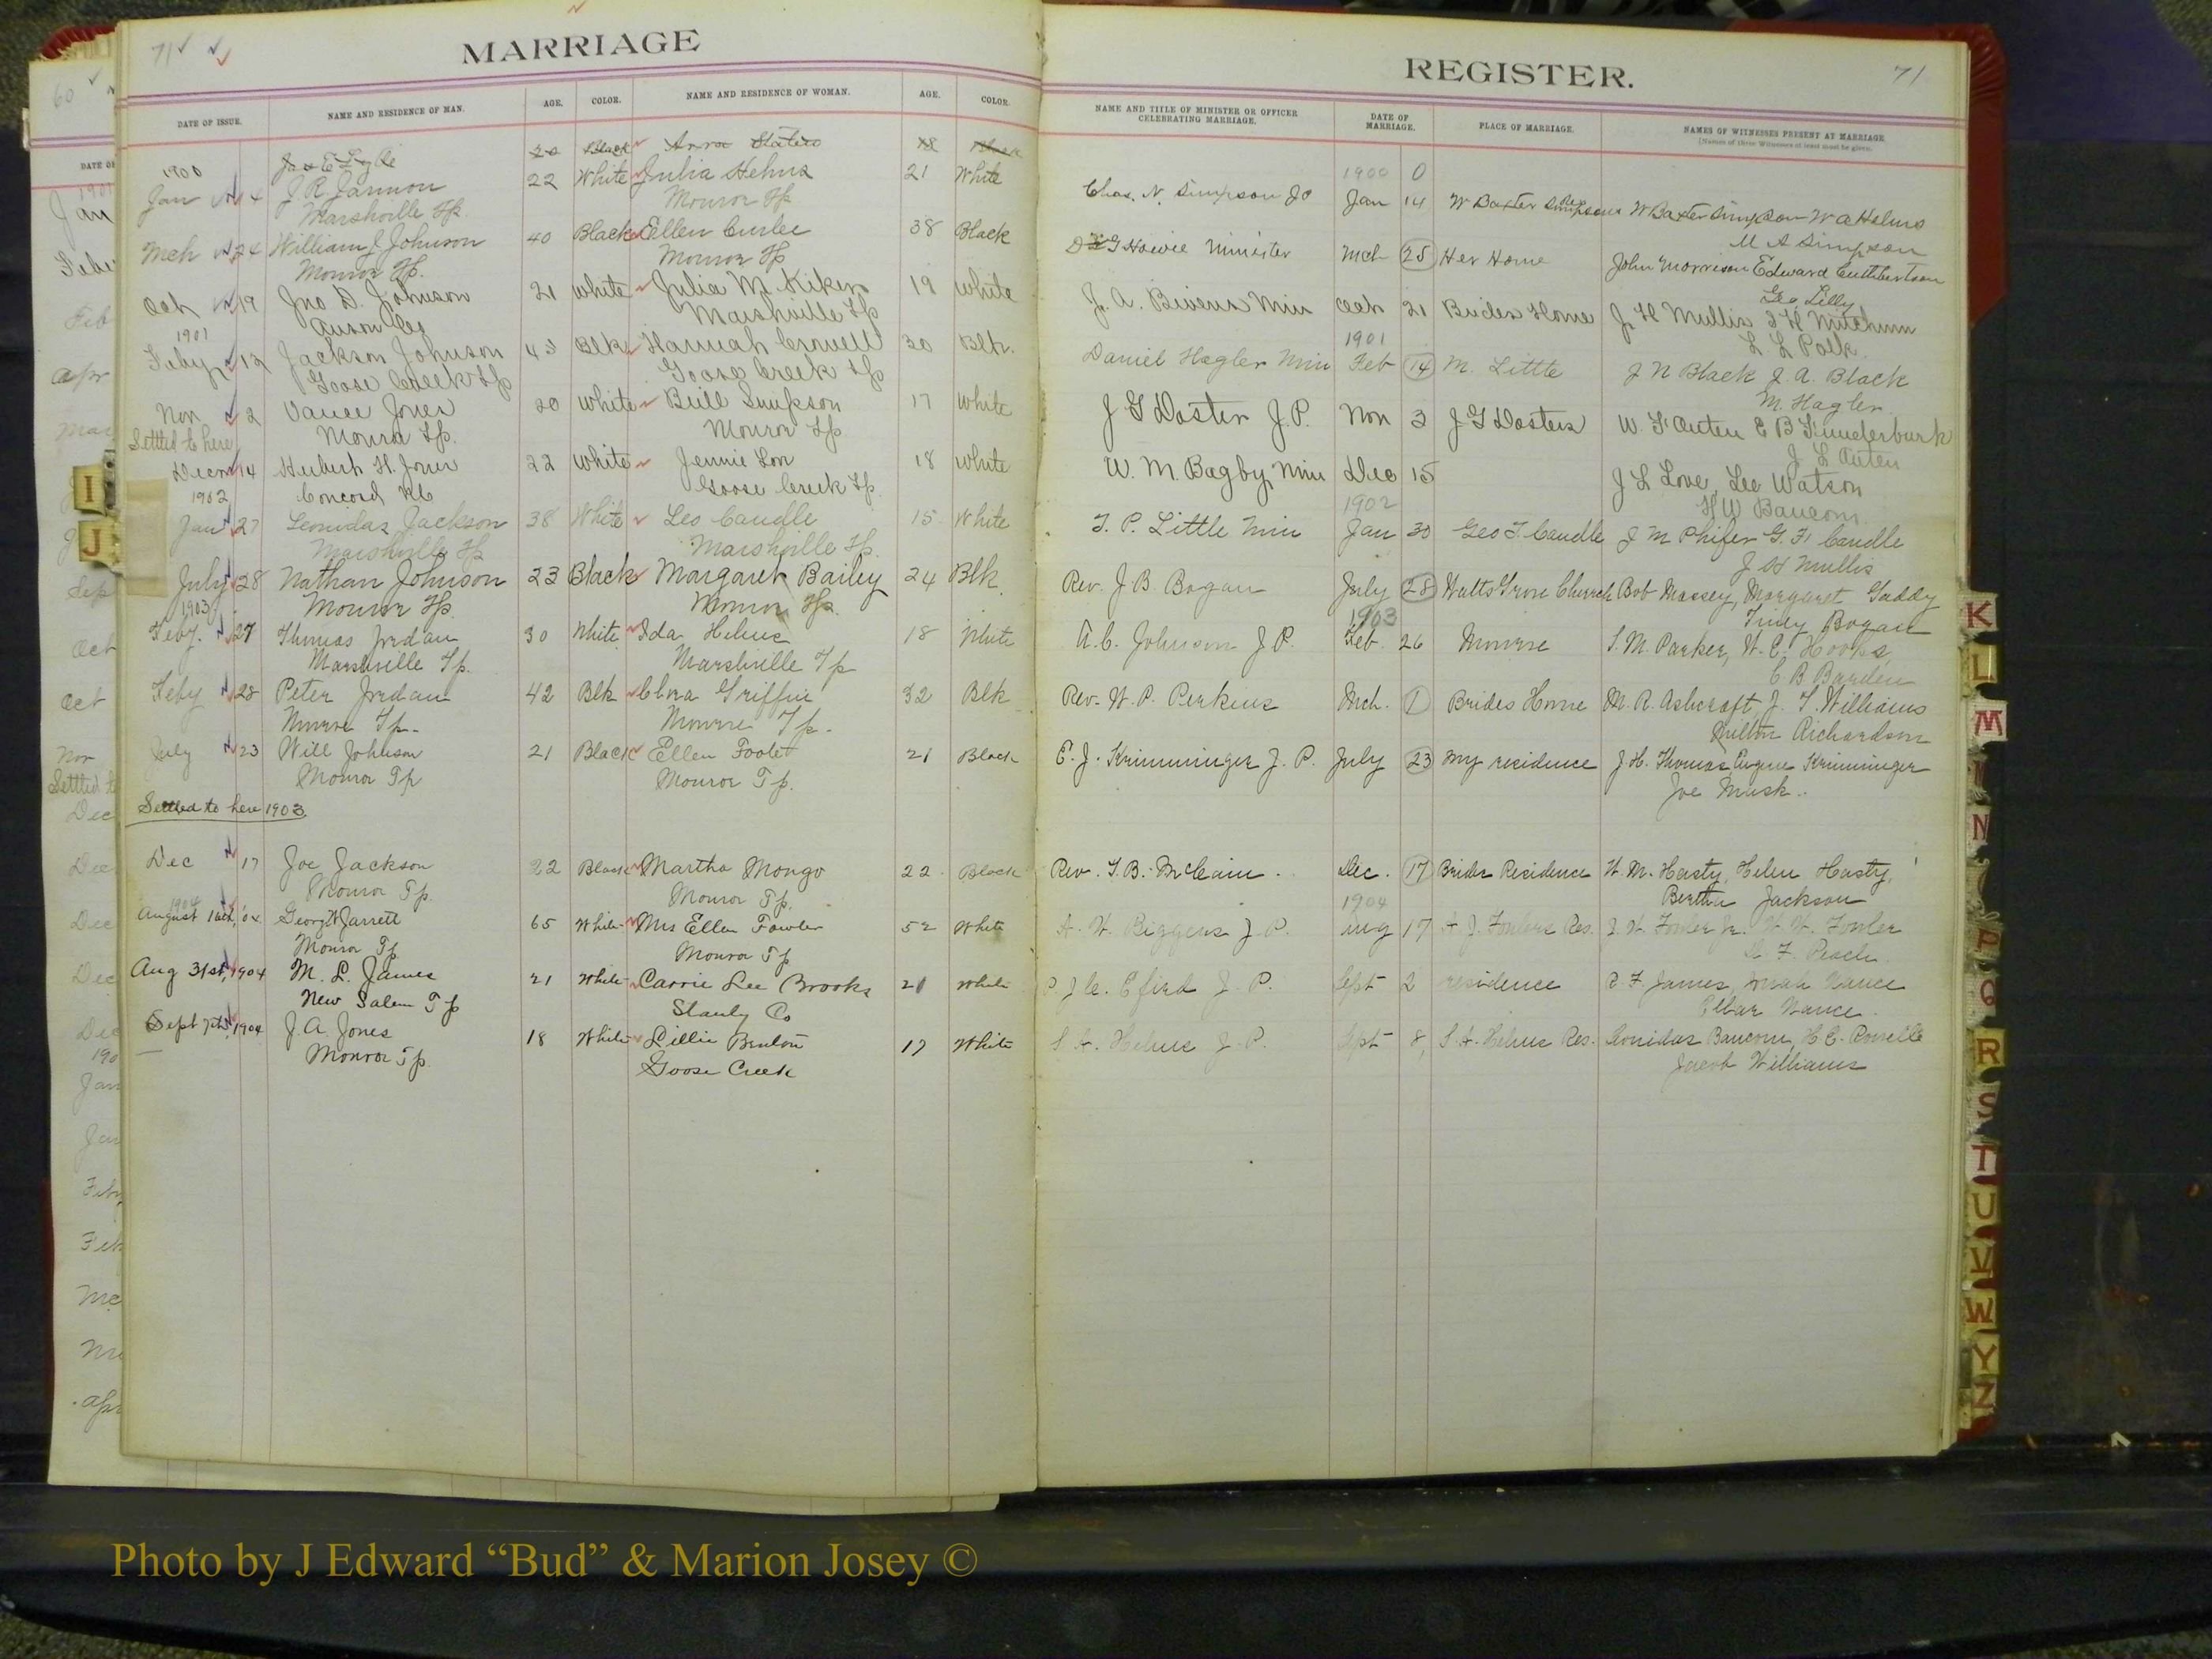 MARRIAGE
71
DATE OF ISSUE. NAME AND RESIDENCE OF MAN. AGE. COLOR. NAME AND RESIDENCE OF WOMAN. AGE. COLOR.
1900 20 Black Anna 18 Black
Jan 14 J R Jarmon 22 White Julia Helms 21 White
Marshville Tp. Monroe Tp
Mch 24 William J Johnson 40 Black Ellen Curlee 38 Black
Monroe Tp. Monroe Tp
Oct 19 Jno D. Johnson 21 White Julia M. Kiker 19 White
Anson Co Marshville Tp
1901
Feby 12 Jackson Johnson 43 Blk Hannah Crowell 30 Blk.
Goose Creek Tp Goose Creek Tp
Nov 2 Vance Jones 20 White Bill Simpson 17 White
Settled to here Monroe Tp. Monroe Tp
Decm 14 Hubert H. Jones 22 White Jennie Lov 18 White
1902 Concord NC Goose Creek Tp.
Jan 27 Leonidas Jackson 38 White Leo Caudle 15 White
Marshville Tp Marshville Tp.
July 28 Nathan Johnson 23 Black Margaret Bailey 24 Blk.
1903 Monroe Tp. Monroe Tp.
Feby. 27 Thomas Jordan 30 White Ida Helms 18 White
Marshville Tp. Marshville Tp
Feby 28 Peter Jordan 42 Blk Cora Griffin 32 Blk
Monroe Tp. Monroe Tp.
July 23 Will Johnson 21 Black Ellen Foolet 21 Black
Monroe Tp Monroe Tp.
Settled to here 1903
Dec 17 Joe Jackson 22 Black Martha Mongo 22 Black
Monroe Tp. Monroe Tp.
1904
August 16th, '04 George W Jarrett 65 White Mrs Ellen Fowler 52 White
Monroe Tp Monroe Tp
Aug 31st, 1904 M. L. James 21 White Carrie Lee Brooks 21 White
New Salem Tp Stanly Co
Sept 7th, 1904 J. A. Jones 18 White Lillie Benton 17 White
Monroe Tp. Goose Creek
REGISTER.
71
NAME AND TITLE OF MINISTER OR OFFICER CELEBRATING MARRIAGE. DATE OF MARRIAGE. PLACE OF MARRIAGE. NAMES OF WITNESSES PRESENT AT MARRIAGE
[Names of three Witnesses at least must be given.
1900 0
Chas. N. Simpson JP Jan 14 W Baxter Simpsons Res W Baxter Simpson W A Helms
M A Simpson
D G Howie Minister Mch 25 Her Home John Morrison Edward Cuthbertson
Geo Lilly
J. A. Bivens Min Oct 21 Brides Home J. H Mullis J H Mitchum
1901 L. L Polk
Daniel Hagler Min Feb 14 M. Little J N Black J. A. Black
M. Hagler
J G Doster J.P. Nov 3 J G Dosters W. F Outen E B Funderburk
J L Outen
W. M. Bagby Min Dec 15 J L Love, Lee Watson
1902 H W Baucom
J. P. Little Min Jan 30 Geo T. Caudle J M Phifer G. F. Caudle
J H Mullis
Rev. J B. Bogan July 28 Watts Grove Church Bob Massey, Margaret Gaddy
1903 Bogan
A. C. Johnson J.P. Feb. 26 Monroe S. M. Parker, W. C. Hooks
C B Barden
Rev. W. P. Perkins Mch. 1 Brides Home M. R. Ashcraft, J. T. Williams
Milton Richardson
E. J. Krimminger J. P. July 23 My residence J. H. Thomas, Eugene Krimminger
Joe Musk.
Rev. T. B. McCain. Dec. 17 Brides Residence W. M. Hasty, Helen Hasty,
1904 Bertha Jackson
H. W. Biggers J. P. Aug 17 A J. Fowlers Res. J. W. Fowler Jr. W. W. Fowler
P. J. C. Efird J. P. Sept 2 residence D. F James, Nance
Nance
S. H. Helms J. P. Sept 8, S. H. Helms Res. Leonidas Baucom, H. C. Presselle
Jacob Williams
I
J
K
L
M
N
P
Q
R
S
T
U
V
W
Y
Z
Photo by J Edward “Bud” & Marion Josey ©